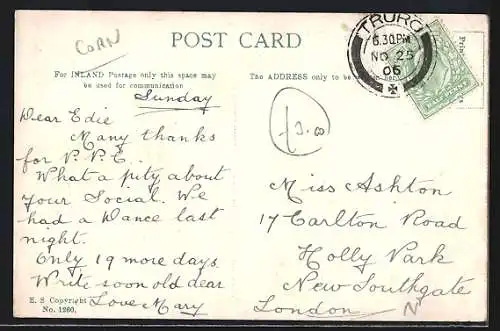 CORN
POST CARD
For INLAND Postage only this space may
be used for communication
The ADDRESS only to be
TRURO
6.30PM
NO 25
06
HALF PENNY
Sunday
Dear Edie
Many thanks
for P.P.C.
What a pity about
your Social. We
had a Dance last
night.
Only 19 more days.
Write soon old dear
Love Mary
E. S Copyright
No. 1260.
£3.8
Miss Ashton
17 Carlton Road
Holly Park
New Southgate
London N